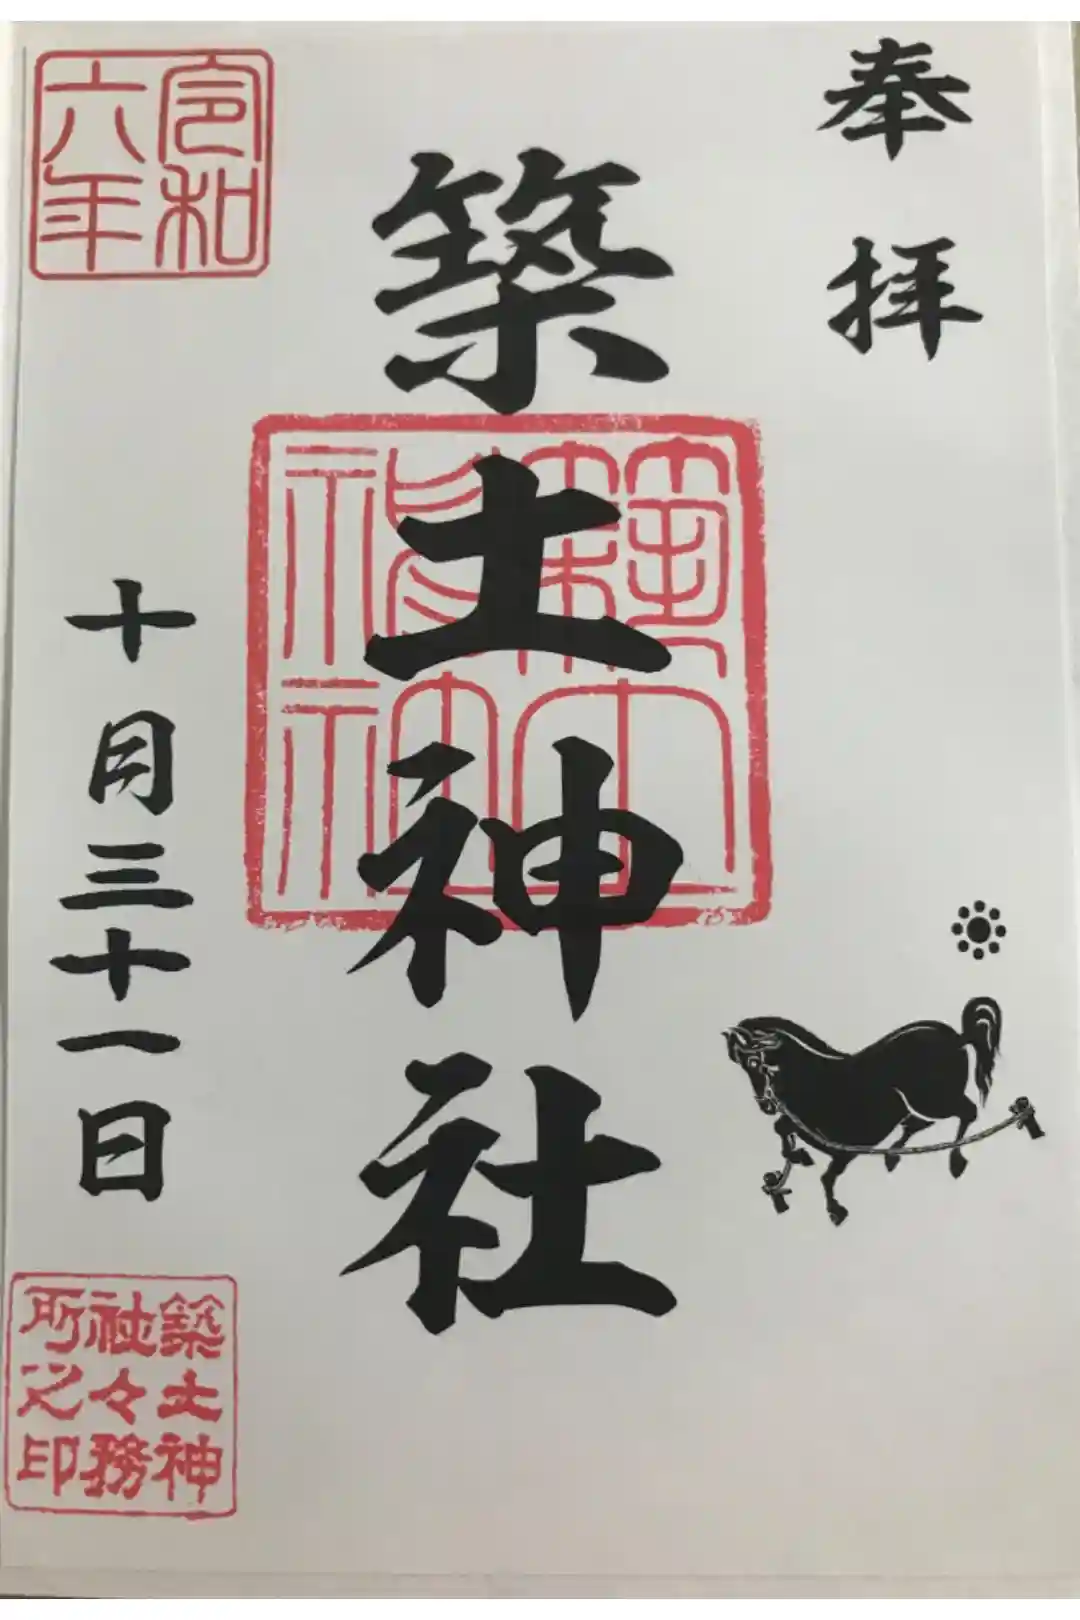 奉拝
築土神社
築土神社
令和六年
十月三十一日
築土神社々務所之印